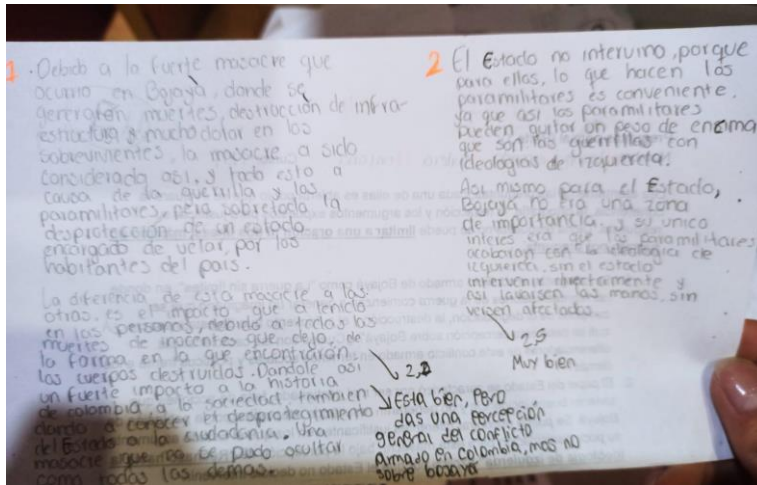 1. Debido a la fuerte masacre que
ocurrio en Bojayá, donde se
generaron muertes, destrucción de infra-
estructura y mucho dolor en los
sobrevivientes, la masacre a sido
considerada asi, y todo esto a
causa de la guerrilla y las
paramilitares, pero sobretodo la
desprotección de un estado
encargado de velar, por los
habitantes del pais.
La diferencia de esta masacre a las
otras, es el impacto que a tenido
en las personas, debido a todas las
muertes de inocentes que dejo, de
la forma en la que encontraron
los cuerpos destruidos. Dandole asi
un fuerte impacto a la historia
de colombia, a la sociedad tambien
dando a conocer el desprotegimiento
del Estado a la ciudadania. Una
masacre que no se pudo ocultar
como todas las demas.
2,2
Esta bien, Pero
das una Percepción
general del conflicto
Armado en Colombia, mas no
sobre bojaya
2 El Estado no intervino, porque
para ellos, lo que hacen los
paramilitares es conveniente,
ya que asi los paramilitares
pueden quitar un peso de encima
que son las guerrillas con
ideologias de izquierda.
Asi mismo para el Estado,
Bojayá no era una zona
de importancia, y su unico
interes era que los paramilitares
acabaran con la ideologia de
izquierda, sin el estado
intervenir directamente y
asi lavarsen las manos, sin
versen afectados.
2,5
Muy bien